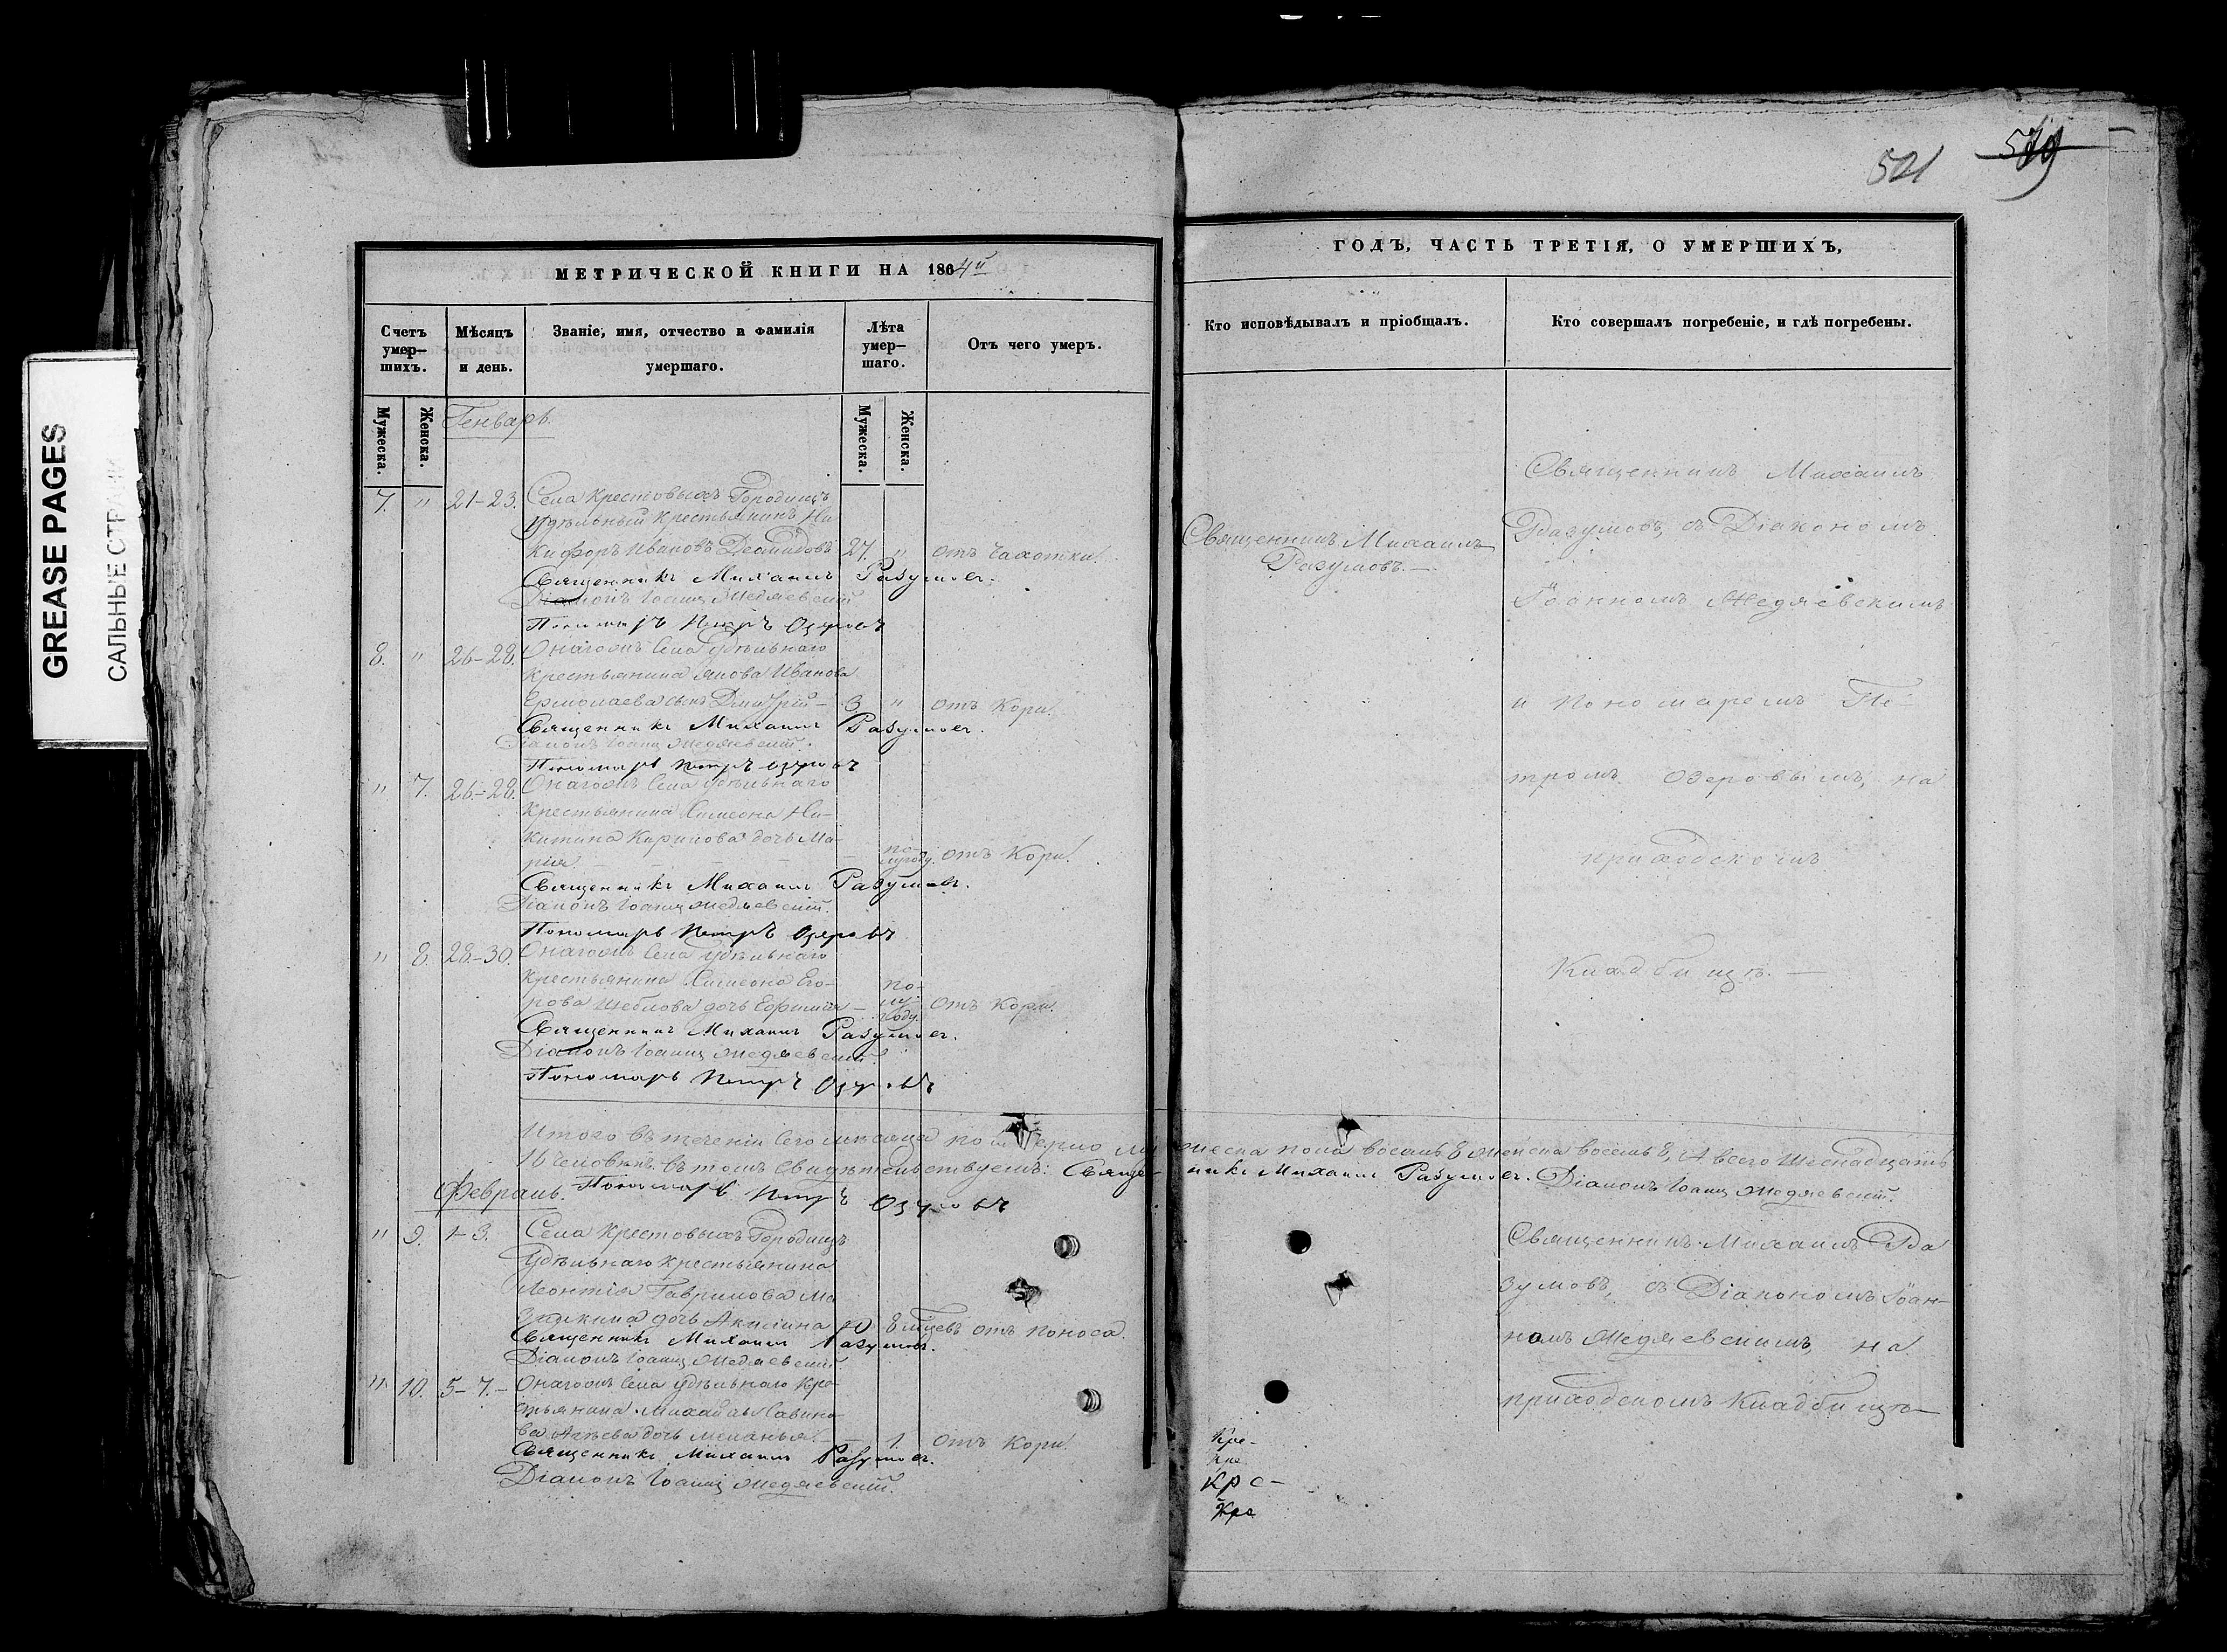 GREASE PAGES
САЛЬНЫЕ СТРАНИ
МЕТРИЧЕСКОЙ КНИГИ НА 1864й
Счетъ умер-шихъ.
Мѣсяцъ и день.
Званіе, имя, отчество и фамилія умершаго.
Лѣта умер-шаго.
Отъ чего умеръ.
Мужеска.
Женска.
Генварь.
Мужеска.
Женска.
7. " 21-23. Села Крестовыхъ Городищъ
Удѣльный крестьянинъ Ни-
кифоръ Ивановъ Демидовъ 27. " отъ чахотки.
Священникъ Михаилъ Разумовъ.
Діаконъ Іоаннъ Медяевскій
Пономарь Петръ Озеровъ
8. " 26-28. Онагожъ села удѣльнаго
крестьянина Якова Иванова
Ермолаева сынъ Дмитрій - 3. " отъ Кори.
Священникъ Михаилъ Разумовъ.
Діаконъ Іоаннъ Медяевскій.
Пономарь Петръ Озеровъ
" 7. 26-28. Онагожъ села удѣльнаго
крестьянина Симеона Ни-
китина Кирилова дочь Ма-
рія - полугоду. отъ Кори.
Священникъ Михаилъ Разумовъ.
Діаконъ Іоаннъ Медяевскій.
Пономарь Петръ Озеровъ
" 8. 28-30. Онагожъ села удѣльнаго
крестьянина Симеона Его-
рова дочь - по-лу-году. отъ Кори.
Священникъ Михаилъ Разумовъ.
Діаконъ Іоаннъ Медяевскій.
Пономарь Петръ Озеровъ
Итого въ теченіи сего мѣсяца померло мужеска пола восемь 8 женска восемь 8, А всего шестнадцать
16 человѣкъ въ томъ свидѣтельствуемъ: Священникъ Михаилъ Разумовъ. Діаконъ Іоаннъ Медяевскій.
Февраль. Пономарь Петръ Озеровъ
" 9. 1-3. Села Крестовыхъ Городищъ
Удѣльнаго крестьянина
Леонтія Гаврилова
дочь Акилина 8 мцевъ отъ поноса.
Священникъ Михаилъ Разумовъ.
Діаконъ Іоаннъ Медяевскій
" 10. 5-7.- Онагожъ села удѣльнаго кре-
стьянина Михайлы Савино-
ва дочь Меланья - 1. отъ Кори.
Священникъ Михаилъ Разумовъ.
Діаконъ Іоаннъ Медяевскій.
521
519
ГОДЪ, ЧАСТЬ ТРЕТІЯ, О УМЕРШИХЪ,
Кто исповѣдывалъ и пріобщалъ.
Кто совершалъ погребеніе, и гдѣ погребены.
Священникъ Михаилъ
Разумовъ.-
Священникъ Михаилъ
Разумовъ, съ Діакономъ
Іоанномъ Медяевскимъ
и пономаремъ Пе-
тромъ Озеровымъ, на
приходскомъ
Кладбищѣ.-
Священникъ Михаилъ Ра
зумовъ, съ Діакономъ Іоан-
номъ Медяевскимъ, на
приходскомъ Кладбищѣ-
Кре-
Кре
Кре-
Кре